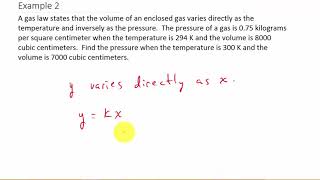 Example 2
A gas law states that the volume of an enclosed gas varies directly as the
temperature and inversely as the pressure.  The pressure of a gas is 0.75 kilograms
per square centimeter when the temperature is 294 K and the volume is 8000
cubic centimeters.  Find the pressure when the temperature is 300 K and the
volume is 7000 cubic centimeters.
y varies directly as x.
y = kx